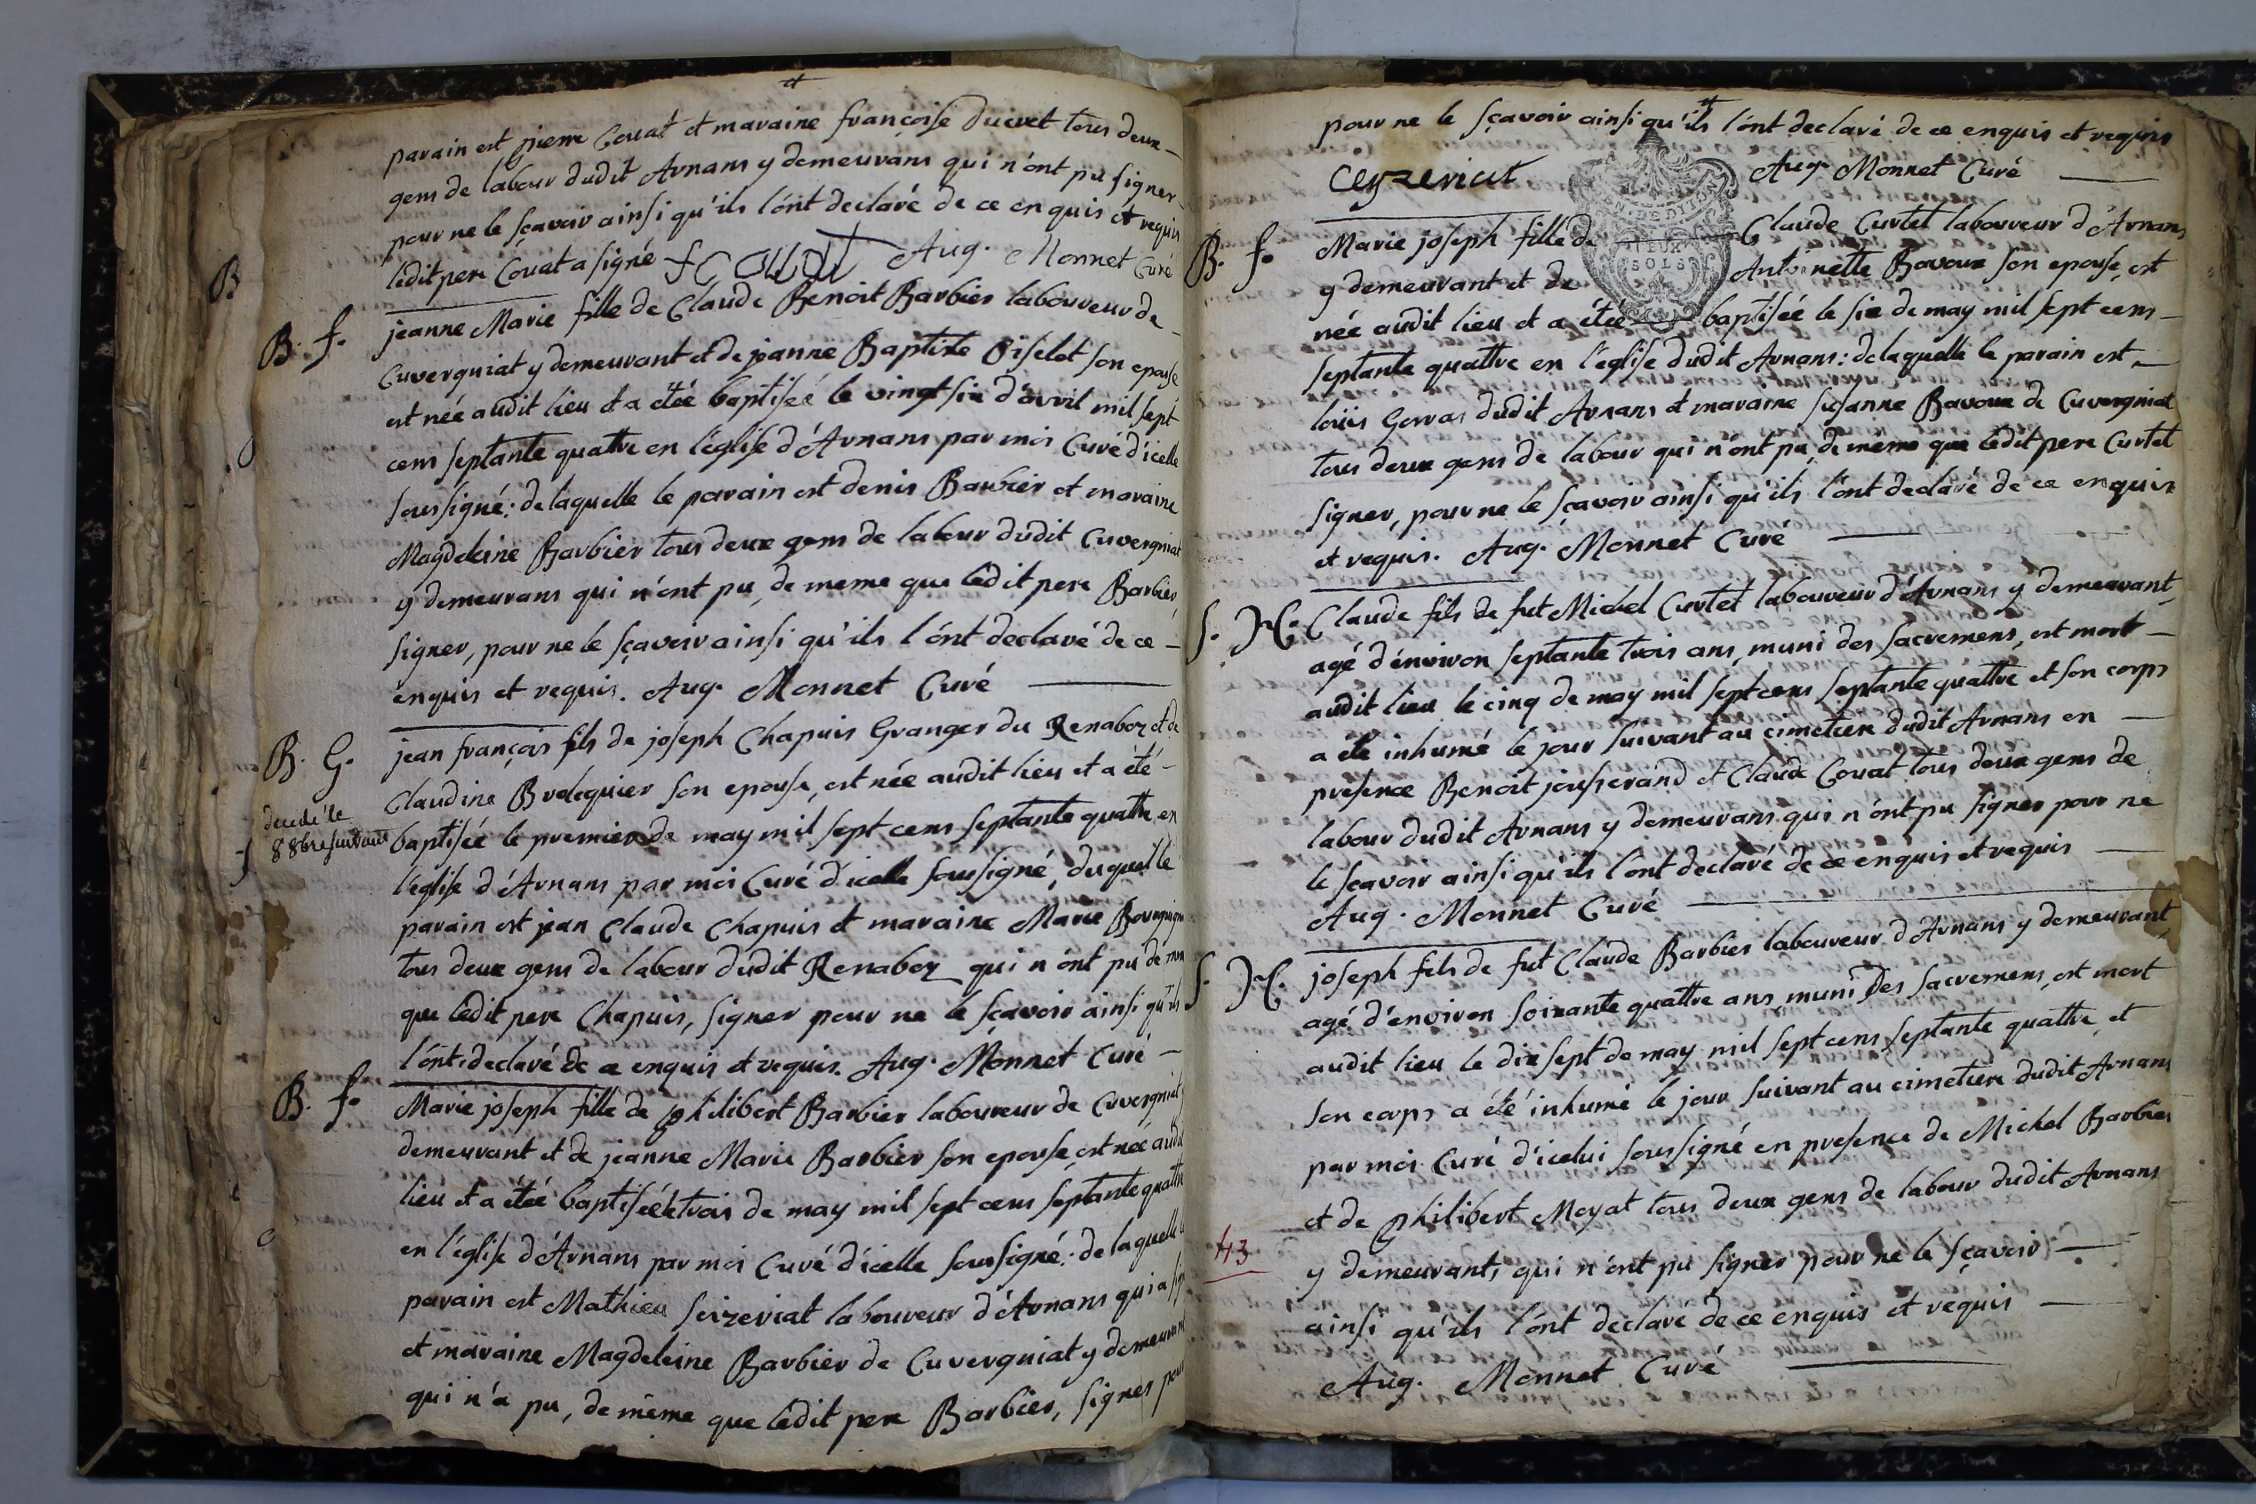 parain est pierre Couat et maraine françoise ducret tous deux
gens de labour dudit Arnans y demeurans qui n'ont pu signer
pour ne le sçavoir ainsi qu'ils l'ont declaré de ce enquis et requis
ledit pere Couat a signé f couat Aug. Monnet Curé
B
B. f.
jeanne Marie fille de Claude Benoit Barbier laboureur de
Cuvergniat y demeurant et de jeanne Baptiste Oiselet son epouse
est née audit lieu et a étée baptisée le vingt six d'avril mil sept
cens septante quattre en l'église d'Arnans par moi Curé d'icelle
soussigné: de laquelle le parain est denis Barbier et maraine
Magdeleine Barbier tous deux gens de labour dudit Cuvergniat
y demeurans qui n'ont pu, de meme que ledit pere Barbier,
signer, pour ne le sçavoir ainsi qu'ils l'ont declaré de ce
enquis et requis. Aug. Monnet Curé
B. G.
decedé le
8 8bre suivant
jean françois fils de joseph Chapuis Granger du Renaboz et de
Claudine Brolequier son epouse, est née audit lieu et a été
baptisée le premier de may mil sept cens septante quattre en
l'église d'Arnans par moi Curé d'icelle soussigné, duquel le
parain est jean Claude Chapuis et maraine Marie
tous deux gens de labour dudit Renaboz qui n'ont pu de mem
que ledit pere Chapuis, signer pour ne le sçavoir ainsi qu'ils
l'ont declaré de ce enquis et requis. Aug. Monnet Curé
B. f.
Marie joseph fille de philibert Barbier laboureur de Cuvergniat
demeurant et de jeanne Marie Barbier son epouse, est née audit
lieu et a étée baptisée le trois de may mil sept cens septante quattre
en l'église d'Arnans par moi Curé d'icelle soussigné: de laquelle le
parain est Mathieu Seizeriat laboureur d'Arnans qui a
et maraine Magdeleine Barbier de Cuvergniat y demeurant
qui n'a pu, de même que ledit pere Barbier, signer pour
pour ne le sçavoir ainsi qu'ils l'ont declaré de ce enquis et requis
Ceyzeriat Aug. Monnet Curé
GEN. DE DIJON
DEUX
SOLS
B. f.
Marie joseph fille de Claude Curtet laboureur d'Arnans
y demeurant et de Antoinette Bavoux son epouse, est
née audit lieu et a étée baptisée le six de may mil sept cens
septante quattre en l'église dudit Arnans: de laquelle le parain est
loüis Gervas dudit Arnans et maraine Susanne Bavoux de Cuvergniat
tous deux gens de labour qui n'ont pu, de meme que ledit pere Curtet
signer, pour ne le sçavoir ainsi qu'ils l'ont declaré de ce enquis
et requis. Aug. Monnet Curé
S. M.
Claude fils de fut Michel Curtet laboureur d'Arnans y demeurant,
agé d'énviron septante trois ans, muni des sacremens, est mort
audit lieu le cinq de may mil sept cens septante quattre et son corps
a été inhumé le jour suivant au cimetiere dudit Arnans en
presence Benoit jousserand et Claude Couat tous deux gens de
labour dudit Arnans y demeurans qui n'ont pu signer pour ne
le sçavoir ainsi qu'ils l'ont declaré de ce enquis et requis
Aug. Monnet Curé
S. M.
joseph fils de fut Claude Barbier laboureur d'Arnans y demeurant,
agé d'environ soixante quattre ans, muni des sacremens, est mort
audit lieu le dix sept de may mil sept cens septante quattre, et
son corps a été inhumé le jour suivant au cimetiere dudit Arnans
par moi Curé d'icelui soussigné en presence de Michel Barbier
et de philibert Moyat tous deux gens de labour dudit Arnans
43
y demeurants, qui n'ont pu signer pour ne le sçavoir
ainsi qu'ils l'ont declaré de ce enquis et requis
Aug. Monnet Curé